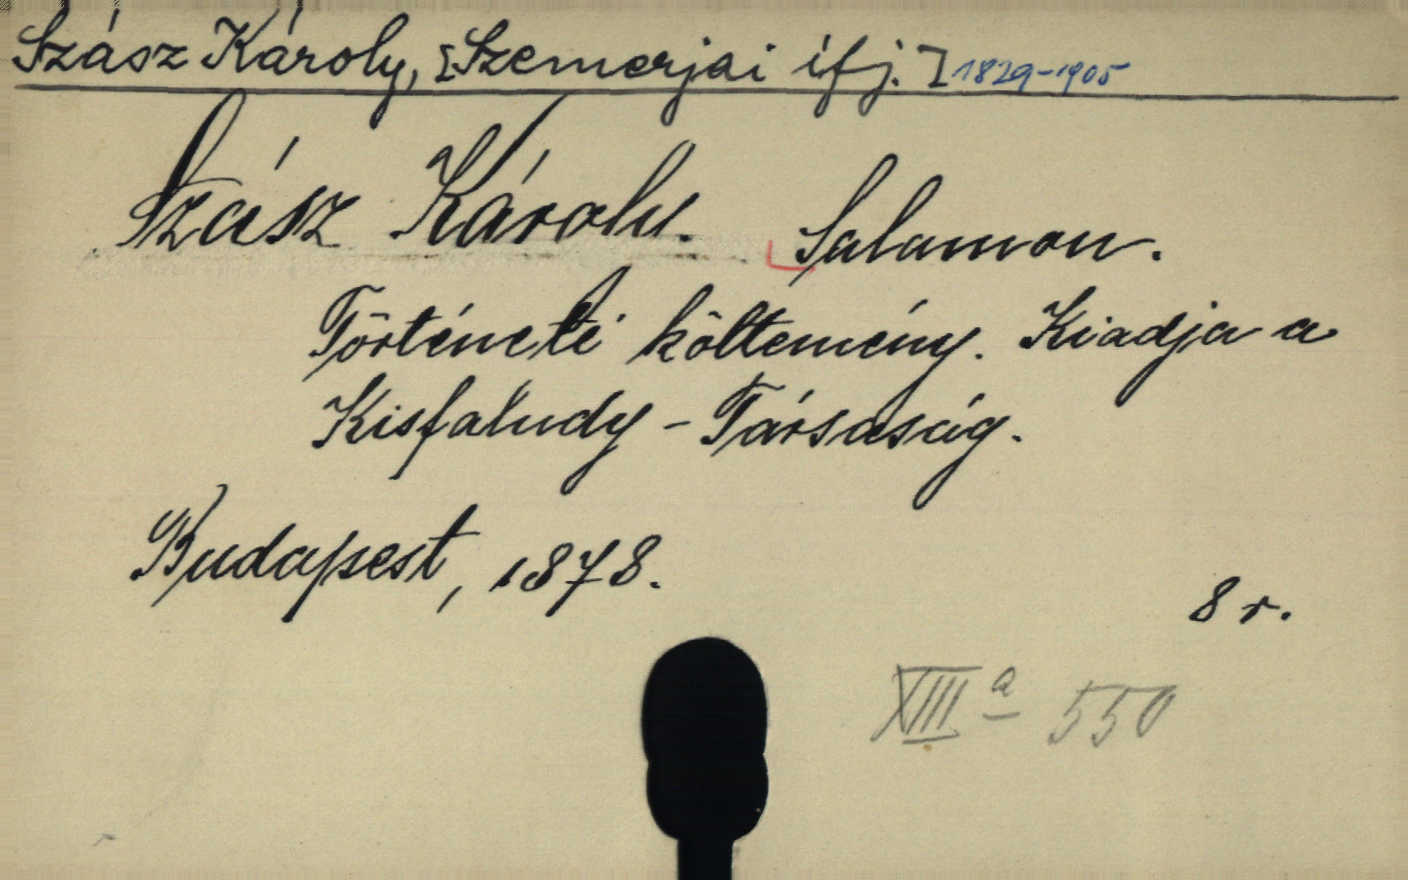 Szász Károly, [Szemerjai ifj.] 1829-1905
Szász Károly. Salamon.
Történeti költemény. Kiadja a
Kisfaludy-Társaság.
Budapest, 1878.
8 r.
XIII a 550